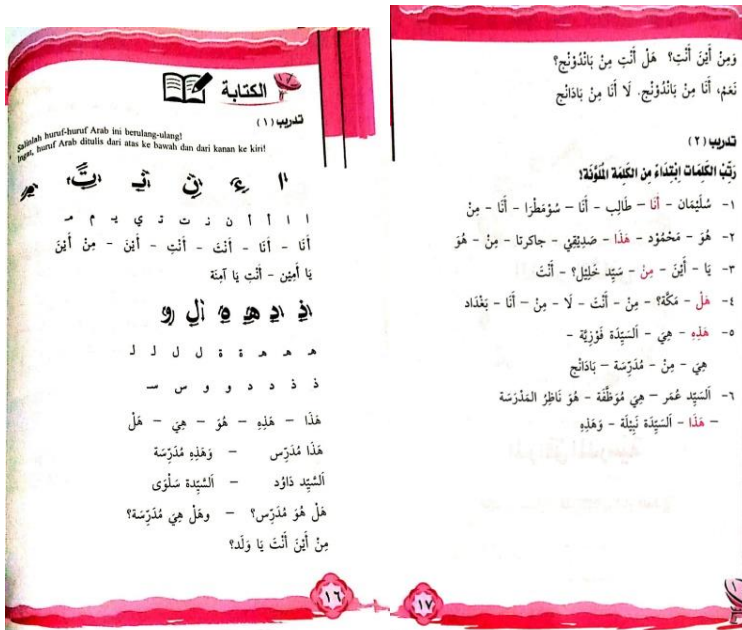 الكتابة
تدريب (١)
Salinlah huruf-huruf Arab ini berulang-ulang!
Ingat, huruf Arab ditulis dari atas ke bawah dan dari kanan ke kiri!
ا ا أ أ ن ز ت ت ي ي م م
أَنَا - أَنَا - أَنْتَ - أَنْتِ - أَيْنَ - مِنْ أَيْنَ
يَا أَمِيْن - أَنْتِ يَا آمِنَة
ه ه ه ة ة ل ل لـ لـ
ذ ذ د د و و س سـ
هَذَا – هَذِهِ – هُوَ – هِيَ – هَلْ
هَذَا مُدَرِّس – وَهَذِهِ مُدَرِّسَة
اَلسَّيِّد دَاوُد – اَلسَّيِّدة سَلْوَى
هَلْ هُوَ مُدَرِّس؟ – وهَلْ هِيَ مُدَرِّسَة؟
مِنْ أَيْنَ أَنْتَ يَا وَلَد؟
١٦
وَمِنْ أَيْنَ أَنْتِ؟ هَلْ أَنْتِ مِنْ بَانْدُوْنْج؟
نَعَمْ، أَنَا مِنْ بَانْدُوْنْج. لَا أَنَا مِنْ بَادَانْج
تدريب (٢)
رَتِّبْ الكَلِمَات اِبْتِدَاءً مِن الكَلِمَة المُلَوَّنَة!
١- سُلَيْمَان - أَنَا - طَالِب - أَنَا - سُوْمَطْرَا - أَنَا - مِنْ
٢- هُوَ - مَحْمُوْد - هَذَا - صَدِيْقِيْ - جاكرتا - مِنْ - هُوَ
٣- يَا - أَيْنَ - مِنْ - سَيِّد خَلِيْل؟ - أَنْتَ
٤- هَلْ - مَكَّة؟ - مِنْ - أَنْتَ - لَا - مِنْ – أَنَا - بَغْدَاد
٥- هَذِهِ - هِيَ - اَلسَّيِّدَة فَوْزِيَّة -
هِيَ - مِنْ - مُدَرِّسَة - بَادَانْج
٦- اَلسَّيِّد عُمَر - هِيَ مُوَظَّفَة - هُوَ نَاظِرُ المَدْرَسَة
- هَذَا - اَلسَّيِّدَة نَبِيْلَة - وَهَذِهِ
١٧